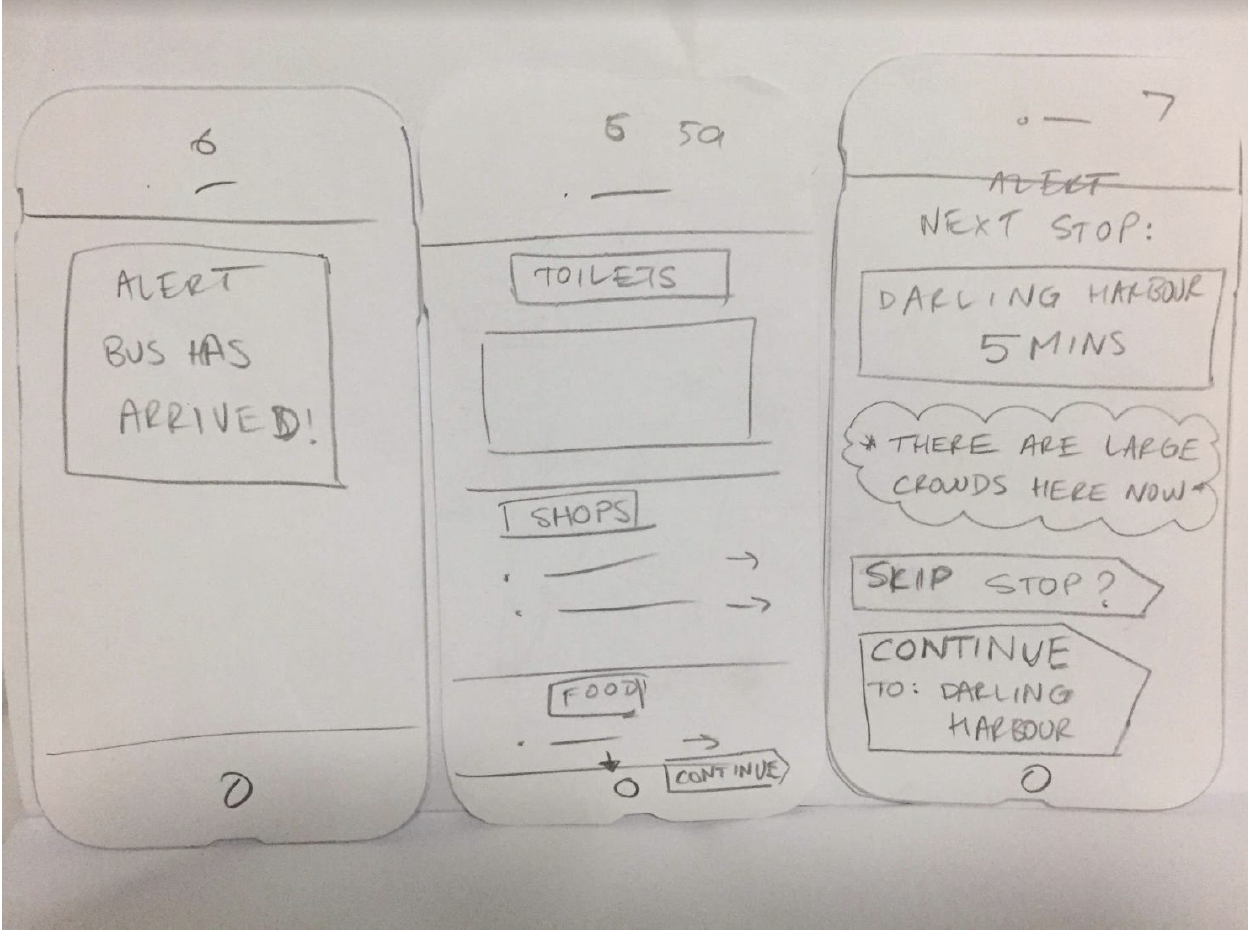 6
ALERT
BUS HAS
ARRIVED!
5 5a
TOILETS
SHOPS
FOOD
CONTINUE
7
ALERT
NEXT STOP:
DARLING HARBOUR
5 MINS
* THERE ARE LARGE
CROWDS HERE NOW *
SKIP STOP?
CONTINUE
TO: DARLING
HARBOUR